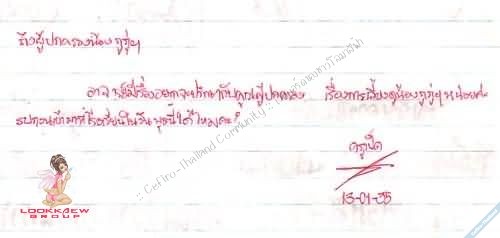 ถึงผู้ปกครองน้องกุ๊กๆ
อาจารย์มีเรื่องอยากจะปรึกษากับคุณผู้ปกครอง เรื่องการเลี้ยงดูน้องกุ๊กๆ หน่อยค่ะ
รบกวนเข้ามาที่โรงเรียนในวันพุธนี้ได้ไหมคะ?
ครูเป็ด
13-01-35
:: Cefiro-Thailand Community ::
LOOKKAEW
GROUP